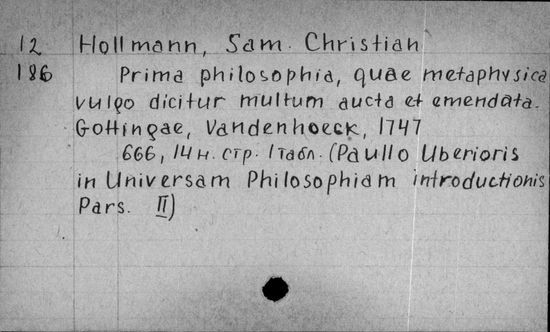 12 Hollmann, Sam. Christian
186 Prima philosophia, quae metaphysica
vulgo dicitur multum aucta et emendata.
Gottingae, Vandenhoeck, 1747
666, 14 н. стр. 1 табл. (Paullo Uberioris
in Universam Philosophiam introductionis
Pars. II)